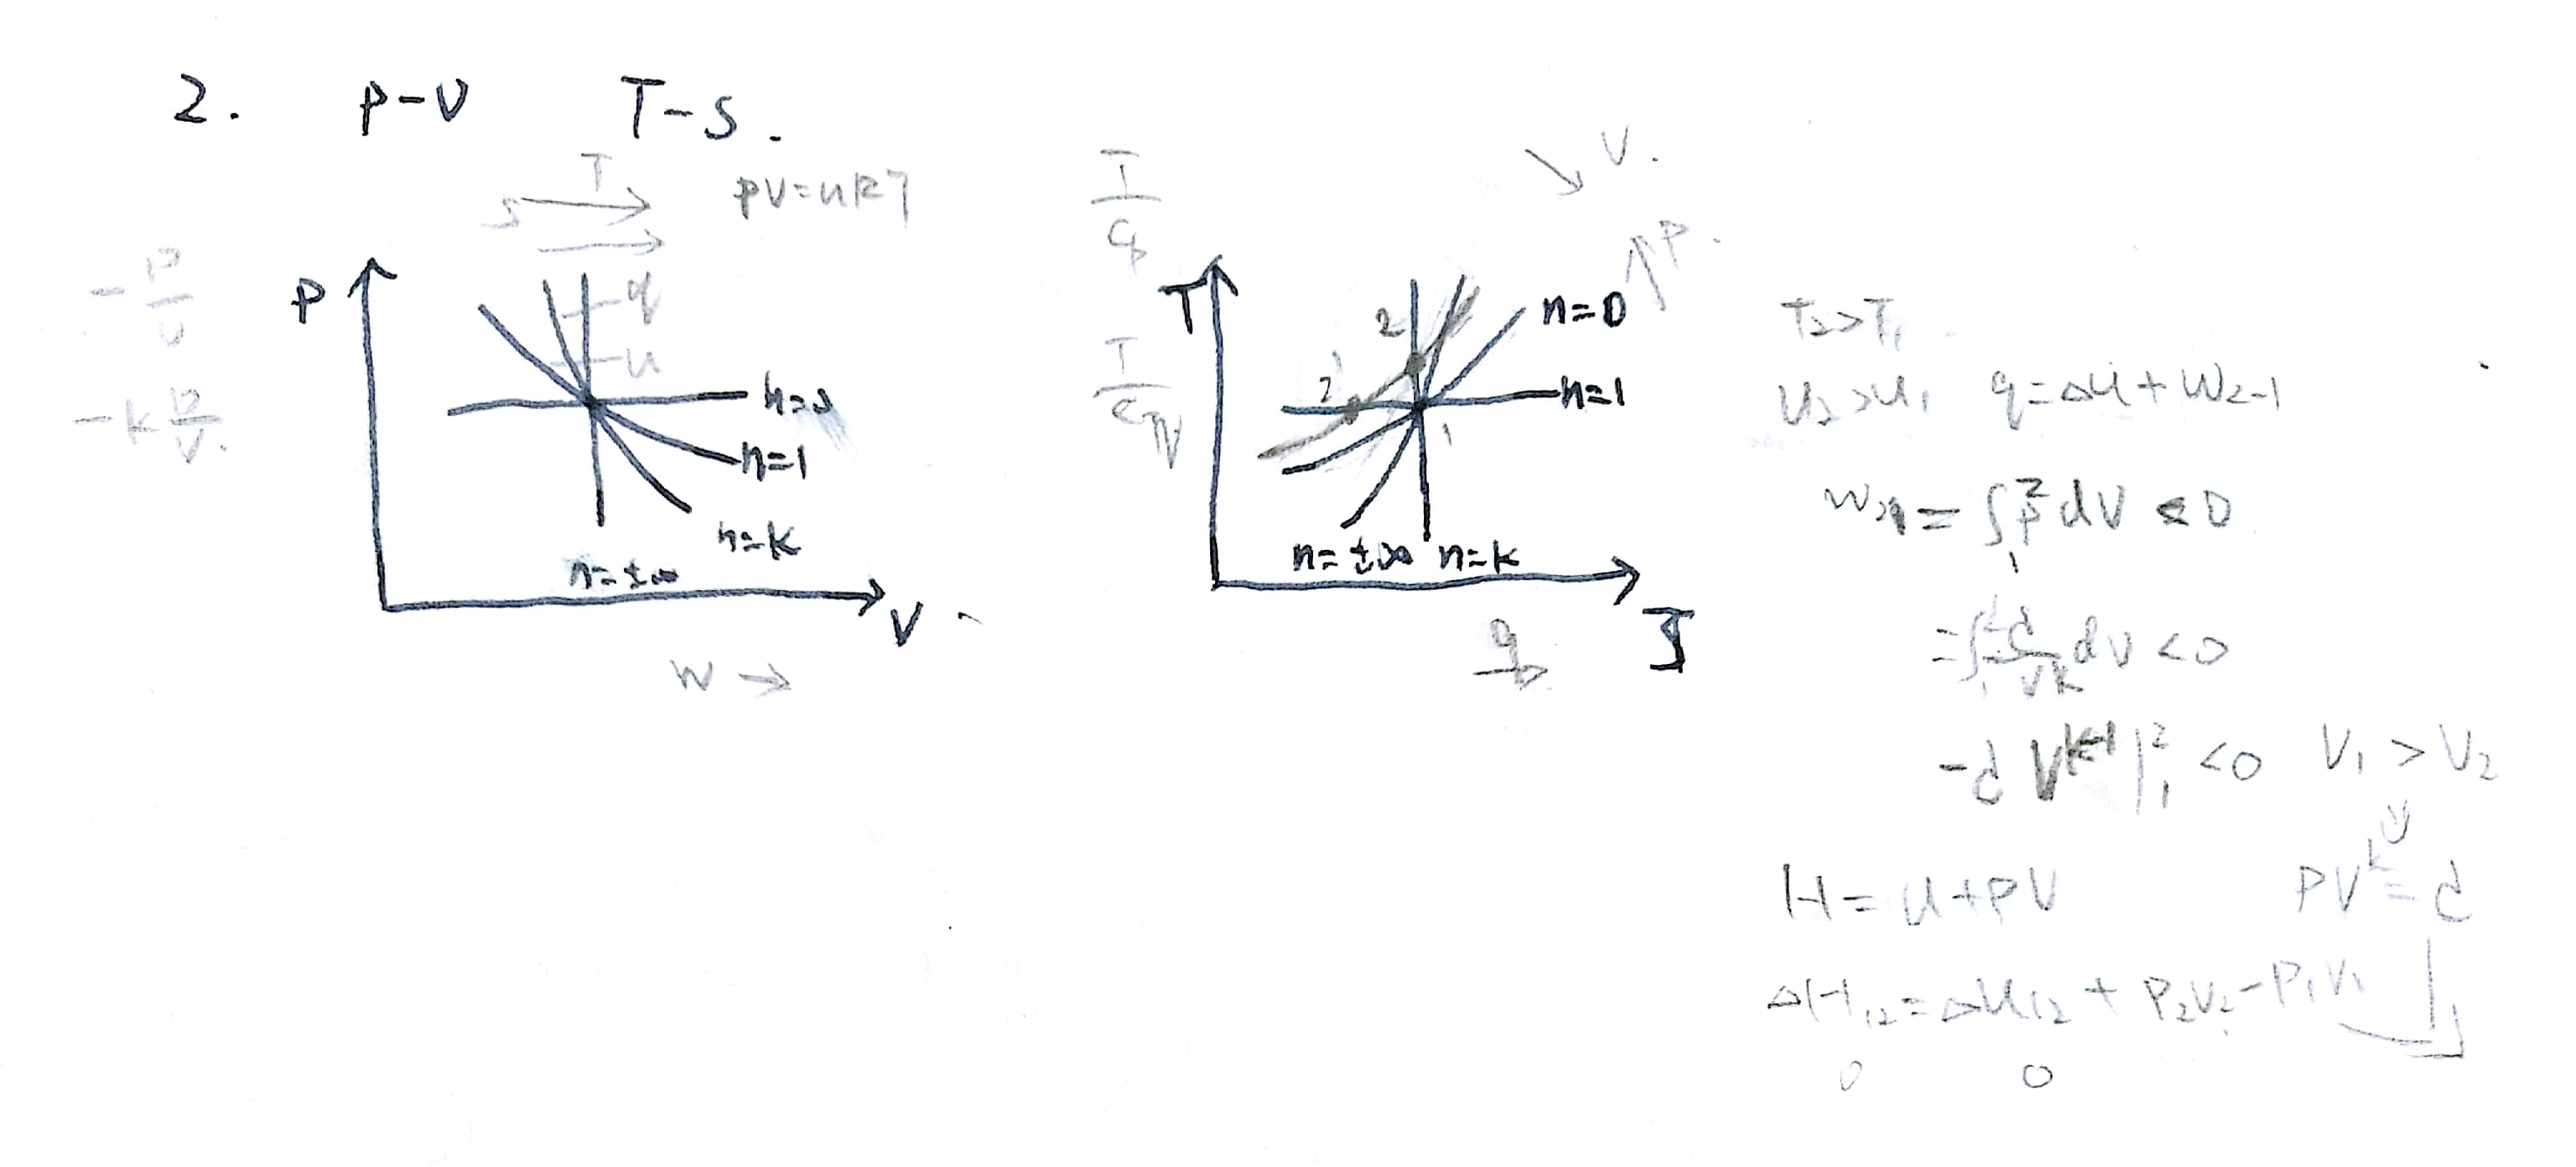 2. P-V T-S.
T
S
PV=nRT
P
-P/V
-kP/V.
q
u
n=1
n=k
n=±∞
V
W →
T/Cp
T/Cv
V.
P.
T
n=0
2
2'
n=1
1
n=±∞ n=k
q
T₂>T₁
U₂>U₁ q=Δu+W₂₋₁
W₂₁=∫₁²PdV<0
=∫₁² d/Vᵏ dV<0
-d Vᵏ⁻¹|₁²<0 V₁>V₂
H=U+PV PVᵏ=d
ΔH₁₂=ΔU₁₂+P₂V₂-P₁V₁
0 0